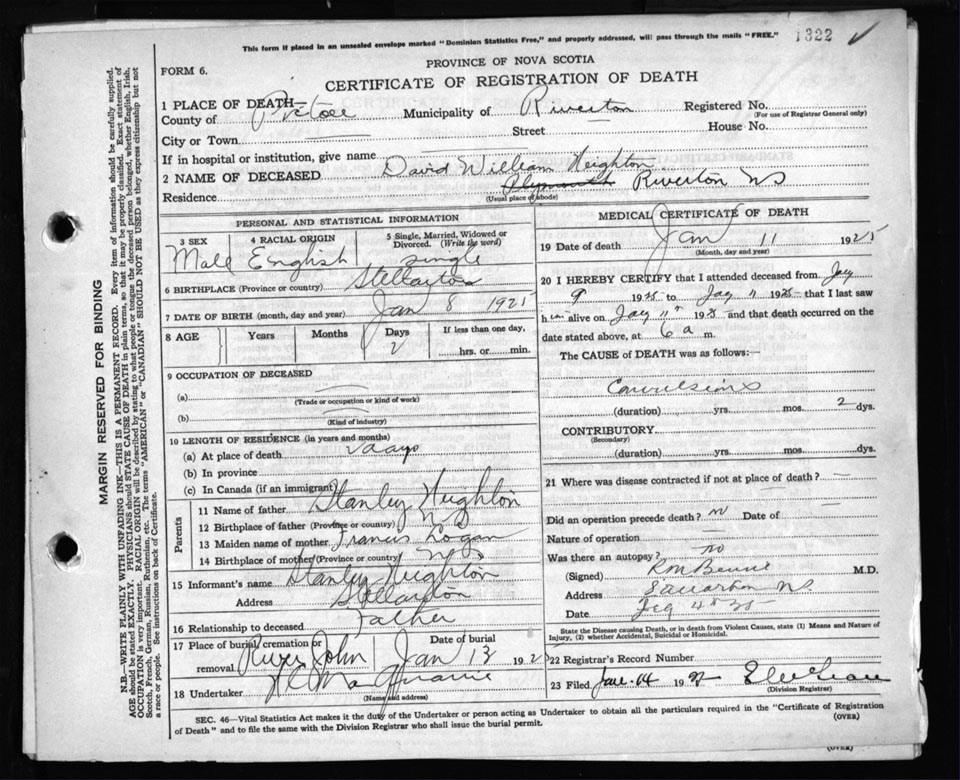 This form if placed in an unsealed envelope marked "Dominion Statistics Free," and properly addressed, will pass through the mails "FREE."
1322 ✓
PROVINCE OF NOVA SCOTIA
FORM 6.
CERTIFICATE OF REGISTRATION OF DEATH
1 PLACE OF DEATH—
County of Pictou Municipality of Riverton Registered No.
(For use of Registrar General only)
City or Town Street House No.
If in hospital or institution, give name
2 NAME OF DECEASED David William Heighton
Residence Plymouth Riverton NS
(Usual place of abode)
PERSONAL AND STATISTICAL INFORMATION
3 SEX 4 RACIAL ORIGIN 5 Single, Married, Widowed or Divorced. (Write the word)
Male English Single
6 BIRTHPLACE (Province or country) Stellarton
7 DATE OF BIRTH (month, day and year) Jan 8 1925
8 AGE Years Months Days If less than one day,
2 hrs. or min.
9 OCCUPATION OF DECEASED
(a)
(Trade or occupation or kind of work)
(b)
(Kind of industry)
10 LENGTH OF RESIDENCE (in years and months)
(a) At place of death days
(b) In province
(c) In Canada (if an immigrant)
Parents
11 Name of father Stanley Heighton
12 Birthplace of father (Province or country) NS
13 Maiden name of mother Francis Logan
14 Birthplace of mother (Province or country) NS
15 Informant's name Stanley Heighton
Address Stellarton
16 Relationship to deceased Father
17 Place of burial, cremation or removal River John Jan 13 192
Date of burial
18 Undertaker
(Name and address)
MEDICAL CERTIFICATE OF DEATH
19 Date of death Jan 11 1925
(Month, day and year)
20 I HEREBY CERTIFY that I attended deceased from
9 1925 to 11 1925 that I last saw
him alive on 11 1925 and that death occurred on the
date stated above, at 6 a m.
The CAUSE of DEATH was as follows:—
Convulsions
(duration) yrs. mos. 2 dys.
CONTRIBUTORY
(Secondary)
(duration) yrs. mos. dys.
21 Where was disease contracted if not at place of death?
Did an operation precede death? no Date of
Nature of operation
Was there an autopsy? no
(Signed) M.D.
Address NS
Date
State the Disease causing Death, or in death from Violent Causes, state (1) Means and Nature of
Injury, (2) whether Accidental, Suicidal or Homicidal.
22 Registrar's Record Number
23 Filed Jan. 14 192
(Division Registrar)
SEC. 46—Vital Statistics Act makes it the duty of the Undertaker or person acting as Undertaker to obtain all the particulars required in the "Certificate of Registration
of Death" and to file the same with the Division Registrar who shall issue the burial permit.
(OVER)
(OVER)
MARGIN RESERVED FOR BINDING
N.B.—WRITE PLAINLY WITH UNFADING INK—THIS IS A PERMANENT RECORD. Every item of information should be carefully supplied.
AGE should be stated EXACTLY. PHYSICIANS should STATE CAUSE OF DEATH in plain terms, so that it may be properly classified. Exact statement of
OCCUPATION is very important. RACIAL ORIGIN will be described by stating to what people or tongue the deceased person belonged, whether English, Irish,
Scotch, French, German, Russian, Ruthenian, etc. The terms "AMERICAN" or "CANADIAN" SHOULD NOT BE USED as they express citizenship but not
a race or people. See instructions on back of Certificate.